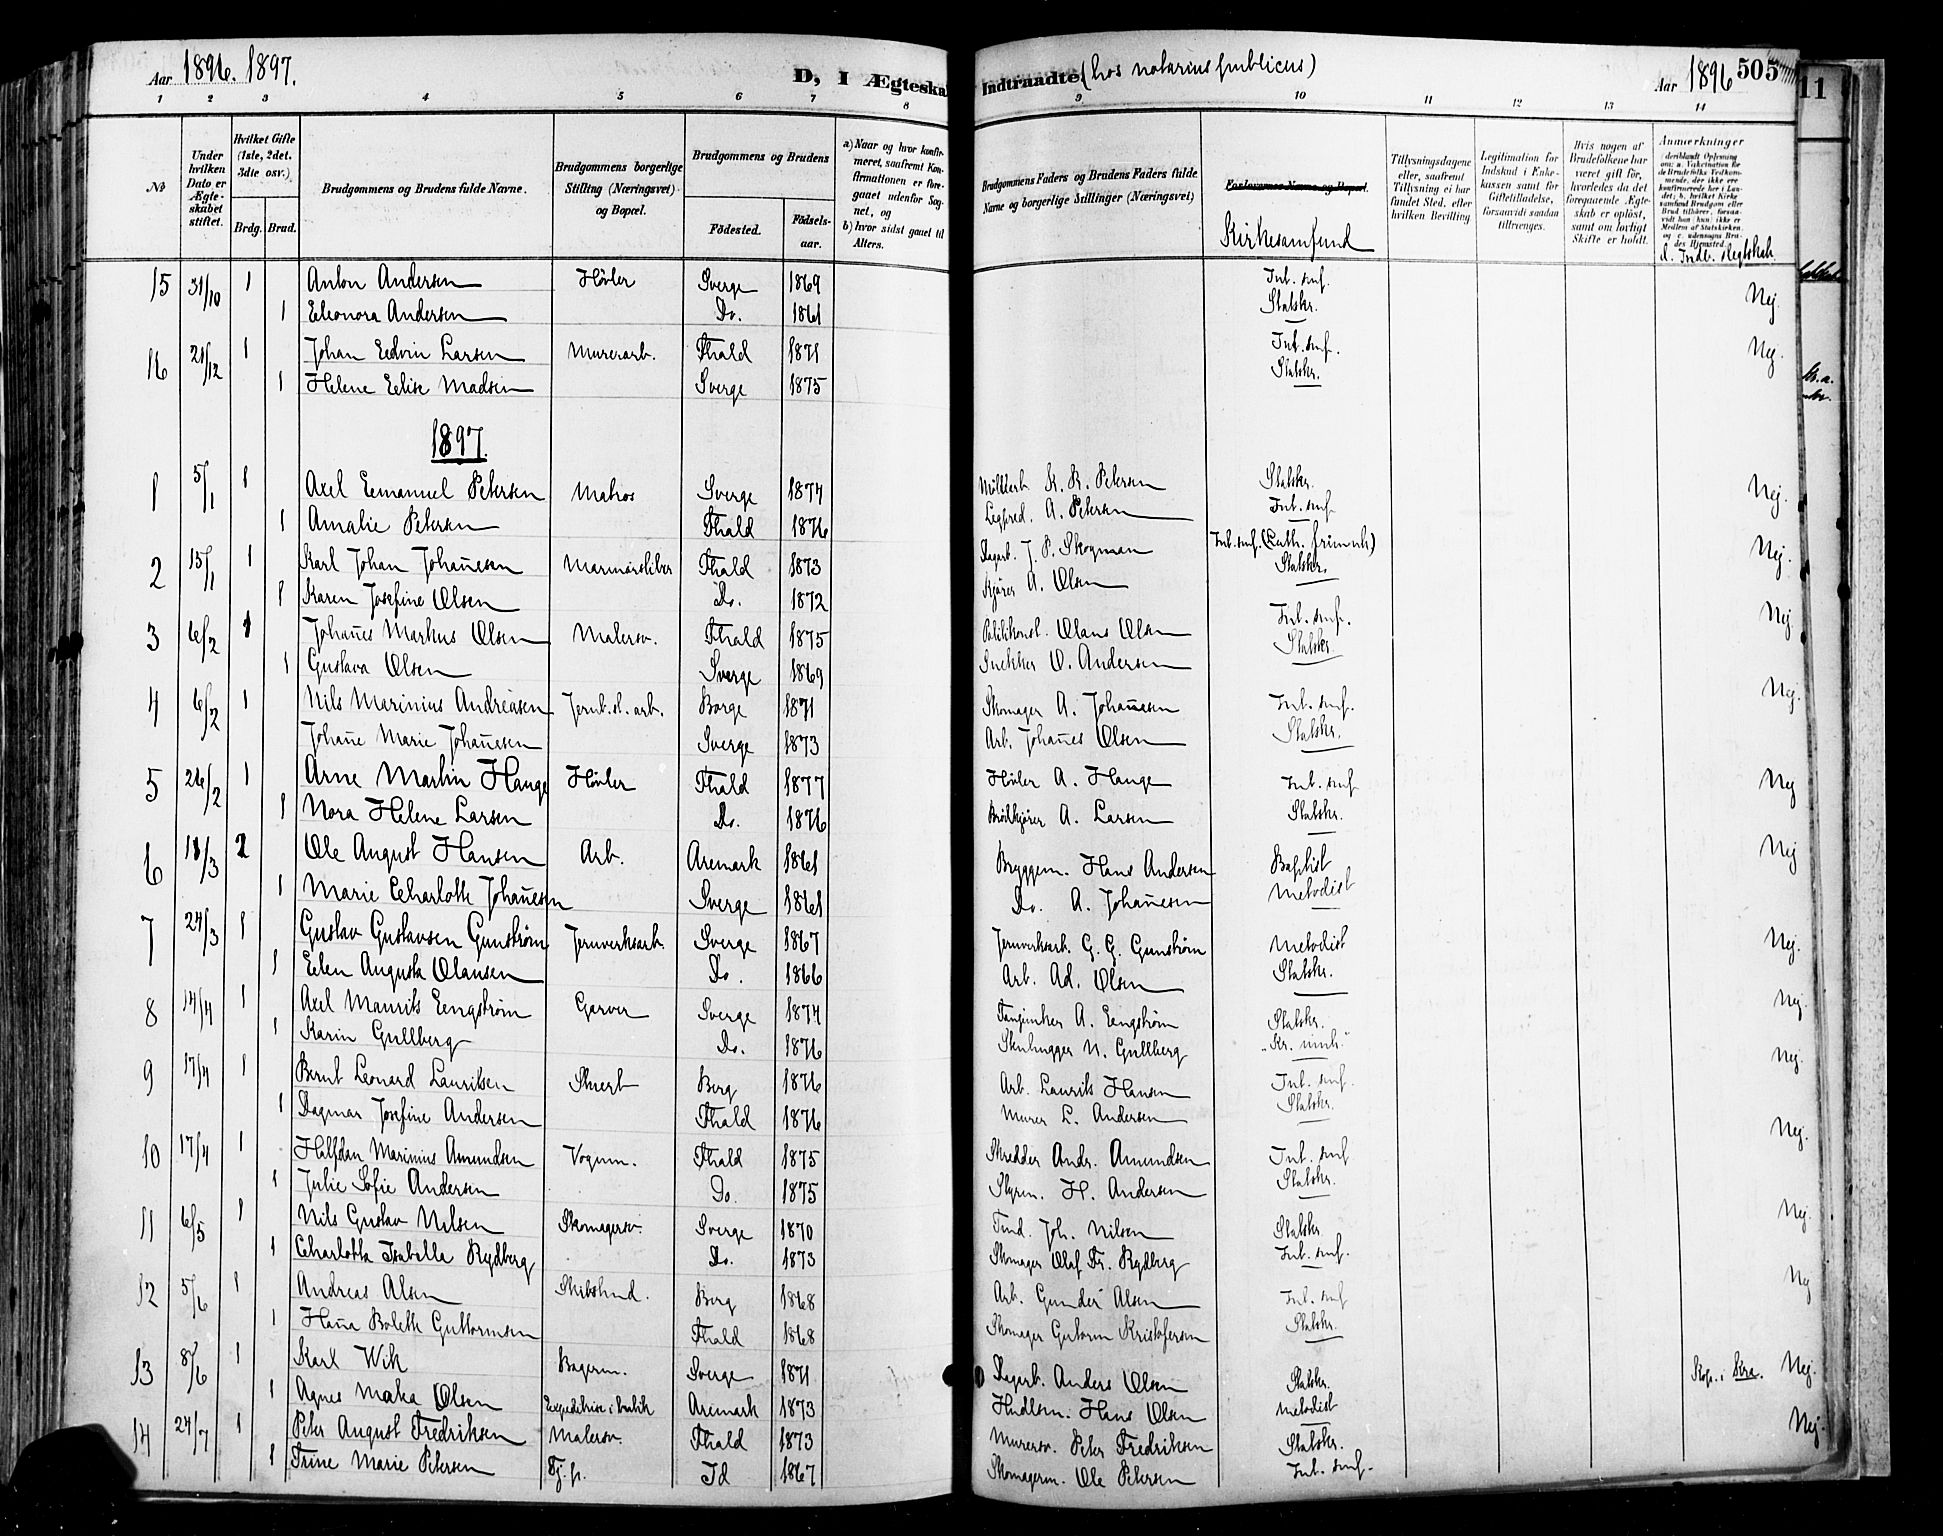 Aar 1896. 1897. D, I Ægteska Indtraadte (hos notarius publicus) Aar 1896 505 11
1 2 3 4 5 6 7 8 9 10 11 12 13 14
No
Under hvilken Dato er Ægteskabet stiftet.
Hvilket Gifte (1ste, 2det, 3dte osv.)
Brdg. Brud.
Brudgommens og Brudens fulde Navne.
Brudgommens borgerlige Stilling (Næringsvei) og Bopæl.
Brudgommens og Brudens
Fødested. Fødsels-aar.
a) Naar og hvor konfirmeret, saafremt Konfirmationen er foregaaet udenfor Sognet, og
b) hvor sidst gaaet til Alters.
Brudgommens Faders og Brudens Faders fulde Navne og borgerlige Stillinger (Næringsvei)
Forlovernes Navne og Bopæl.
Kirkesamfund
Tillysningsdagene eller, saafremt Tillysning ei har fundet Sted, efter hvilken Bevilling
Legitimation for Indskud i Enkekassen samt for Giftetilladelse, forsaavidt saadan tiltrænges.
Hvis nogen af Brudefolkene har været gift før, hvorledes da det foregaaende Ægteskab er opløst, samt om lovligt Skifte er holdt.
Anmærkninger
15 31/10 1 Anton Andersen Høvler Sverge 1869 Int. smf. Nej.
1 Eleonora Andersen Do. 1861 Statskr.
16 21/12 1 Johan Edvin Larsen Murerarb. Fhald 1871 Int. smf. Nej.
1 Helene Elise Madsen Sverge 1875 Statskr.
1897.
1 5/1 1 Axel Emanuel Petersen Matros Sverge 1874 Petersen Statskr. Nej.
1 Amalie Petersen Fhald 1876 A. Petersen Int. smf
2 15/1 1 Karl Johan Johañesen Marmorsliber Fhald 1873 Dagarb. J. P. Skogman Int. smf. (Luth. frimnh) Nej.
1 Karen Josefine Olsen Do. 1872 Kjører A. Olsen Statskr.
3 6/2 1 Johañes Markus Olsen Malersv. Fhald 1875 Politikonst. Olaus Olsen Int. smf. Nej.
1 Gustava Olsen Sverge 1869 Snekker O. Andersen Statskr.
4 6/2 1 Nils Marinius Andreasen Jernb.st.arb. Borge 1871 Skomager A. Johañesen Int. smf. Nej.
Johañe Marie Johañesen Sverge 1873 Arb. Johañes Olsen Statskr.
5 26/2 1 Arne Martin Hauge Høvler Fhald 1877 Høvler A. Hauge Int. smf Nej
1 Nora Helene Larsen Do. 1876 Brødkjører A. Larsen Statskr.
6 18/3 2 Ole August Hansen Arb. Aremark 1861 Bryggem. Hans Andersen Baptist Nej
1 Marie Charlotte Johañesen Sverge 1861 Do. A. Johañesen Metodist
7 24/3 1 Gustav Gustavsen Gunstrøm Jernverksarb. Sverge 1867 Jernverksarb. G. G. Gunstrøm Metodist Nej.
1 Elen Augusta Olausen Do. 1866 Arb. Ad. Olsen Statskr.
8 14/4 1 Axel Maurits Engstrøm Garver Sverge 1874 A. Engstrøm Statskr. Nej.
1 Karin Gullberg Do. 1876 Stenhugger N. Gullberg "Kr. mnh."
9 17/4 1 Bernt Leonard Lauritsen Skuerb Berg 1876 Arb. Laurits Hansen Int. smf. Nej.
1 Dagmar Josefine Andersen Fhald 1876 Murer L. Andersen Statskr.
10 17/4 1 Halfdan Marinius Amundsen Vognm. Fhald 1875 Skredder Andr. Amundsen Int. smf Nej.
1 Julie Sofie Andersen Do. 1875 Styrm. H. Andersen Statskr.
11 6/5 1 Nils Gustav Nilsen Skomagersv. Sverge 1870 Joh. Nilsen Statskr. Nej.
1 Charlotta Isabella Rydberg Do. 1873 Skomager Olaf Fr. Rydberg Int. smf.
12 5/6 1 Andreas Alsen Berg 1868 Arb. Gunder Alsen Int. smf Nej
1 Haña Bolette Guttormsen Fhald 1868 Skomager Gutorm Kristofersen Statskr.
13 8/6 1 Karl Wik Bagerm. Sverge 1871 Dagarb. Anders Olsen Statskr. Kop. i Kra. Nej.
1 Agnes Olsen Expeditrise i butik Aremark 1873 Hndlsm. Hans Olsen Metodist
14 24/7 1 Peter August Fredriksen Malersv. Fhald 1873 Murersv. Peter Fredriksen Statskr. Nej.
1 Trine Marie Petersen Tj. p. Id 1867 Skomagerm. Ole Petersen Int. smf.